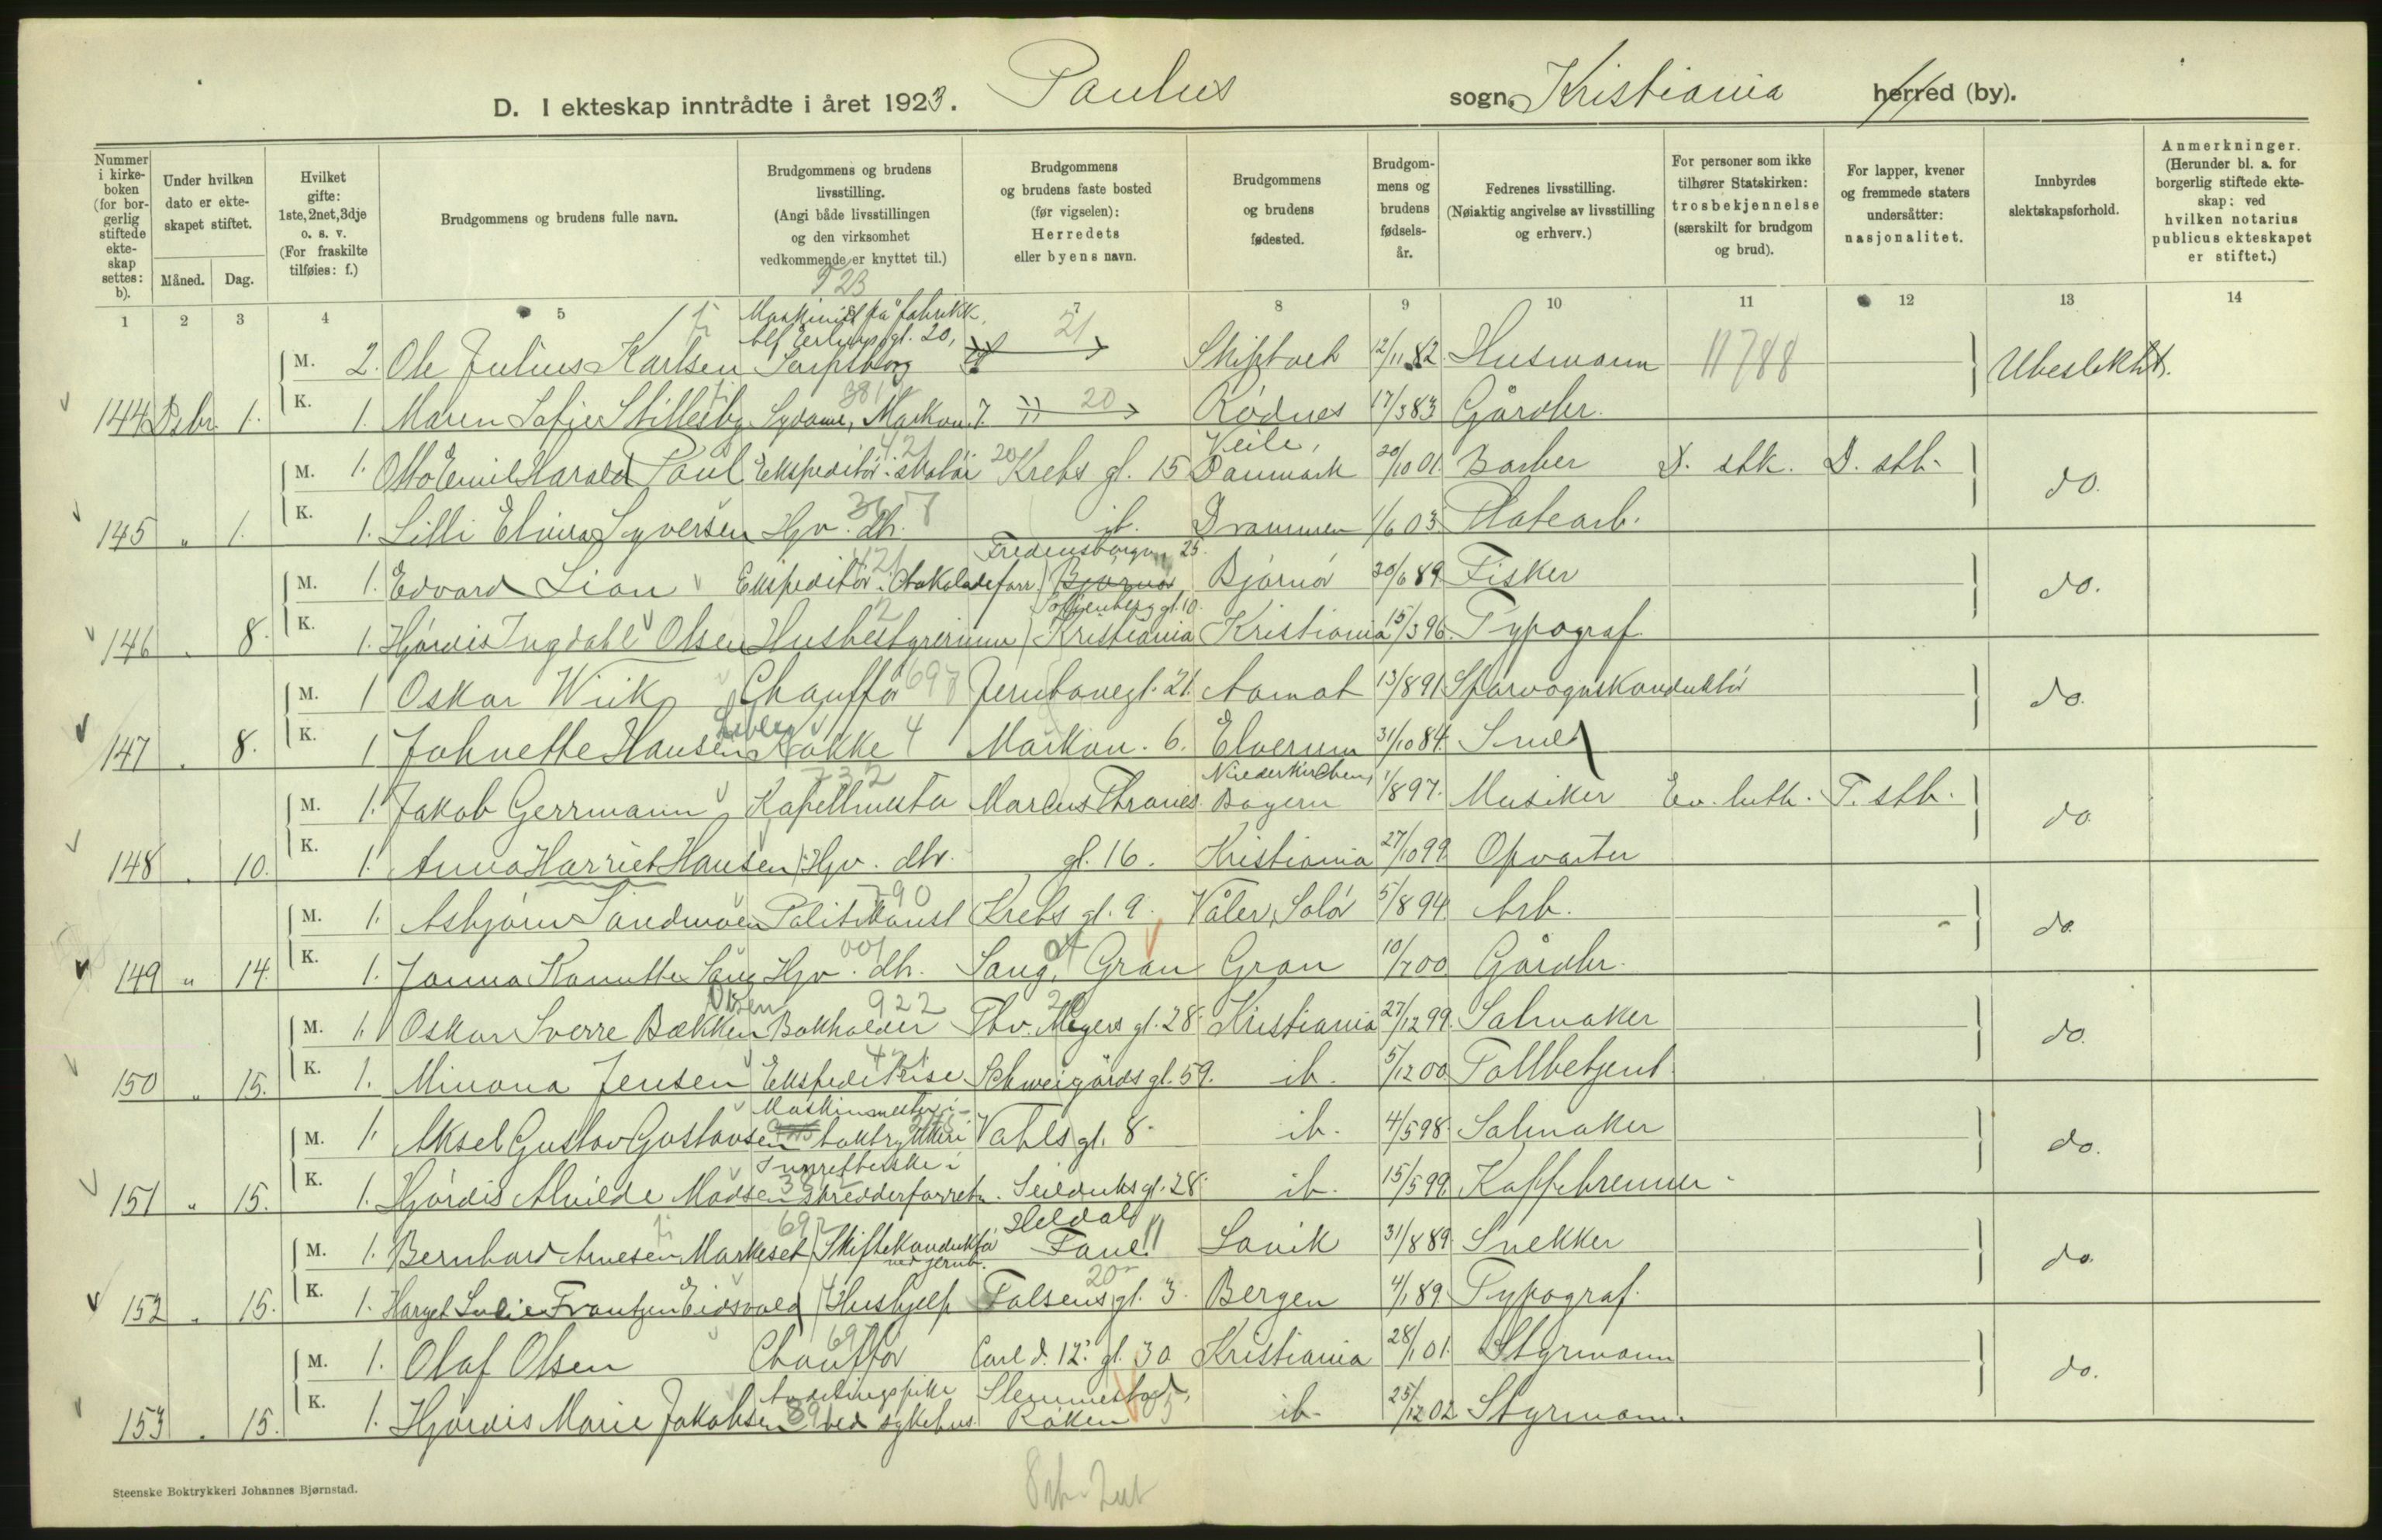 D. I ekteskap inntrådte i året 1923. Paulus sogn, Kristiania herred (by).
Nummer i kirkeboken (for borgerlig stiftede ekteskap settes: b).
Under hvilken dato er ekteskapet stiftet.
Måned. Dag.
Hvilket gifte: 1ste, 2net, 3dje o. s. v. (For fraskilte tilføies: f.)
Brudgommens og brudens fulle navn.
Brudgommens og brudens livsstilling. (Angi både livsstillingen og den virksomhet vedkommende er knyttet til.)
Brudgommens og brudens faste bosted (før vigselen): Herredets eller byens navn.
Brudgommens og brudens fødested.
Brudgommens og brudens fødselsår.
Fedrenes livsstilling. (Nøiaktig angivelse av livsstilling og erhverv.)
For personer som ikke tilhører Statskirken: trosbekjennelse (særskilt for brudgom og brud).
For lapper, kvener og fremmede staters undersåtter: nasjonalitet.
Innbyrdes slektskapsforhold.
Anmerkninger. (Herunder bl. a. for borgerlig stiftede ekteskap: ved hvilken notarius publicus ekteskapet er stiftet.)
1 2 3 4 5 7 8 9 10 11 12 13 14
723
Maskinist på fabrikk, 21
M. 2. Ole Julius Karlsen gl. 20, Sarpsborg Skiptvet 12/11 82. Husmann 11788 Ubeslektet.
144 Dsbr. 1. K. 1. Maren Sofie Stillesby Sydame, Markv. 7. 20 Rødnes 17/3 83 Gårdbr.
M. 1. Otto Emil Harald Paul Ekspeditør i skotøi 20 Krebs gl. 15 Veile, Danmark 20/10 01 Barber D. stk. D. stb. do.
145 " 1. K. 1. Lilli Elvira Syversen Hjv. dh. ib. Drammen 1/6 03 Platearb.
M. 1. Edvard Lian Ekspeditør i sjokoladeforr. Fredensborgv. 25. Bjørnør Bjørnør 20/6 89 Fisker do.
146 " 8. K. 1. Hjørdis Ingdahl Olsen Husbestyrerinne Sofienberg gl. 10. Kristiania Kristiania 15/3 96. Typograf
M. 1 Oskar Wiik Chauffør 697 Jernbanegt. 21. Aamot 13/8 91 Sporvognskonduktør do.
147 " 8. K. 1 Johnette Hansen Kokke 4 Markvn. 6. Elverum 31/10 84 Smed
M. 1. Jakob Germann Kapellmester Marcus Thranes Niederkirchen, Bayern 1/8 97. Musiker Ev. luth. T. stb. do.
148 " 10. K. 1. Anna Harriet Hansen Hjv. dh. gl. 16. Kristiania 27/10 99 Opvarter
M. 1. Asbjørn Sandmoen Politikonst 790 Krebs gl. 9. Våler, Solør 5/8 94 Arb. do.
149 " 14. K. 1. Janna Kanutte Sang Hjv. dh. Sang, Gran Gran 10/7 00 Gårdbr.
M. 1. Oskar Sverre Bekken Olsen Bokholder 922 Thv. Meyers gl. 28. Kristiania 27/12 99. Salmaker do.
150 " 15. K. 1. Minona Jensen Ekspeditrise 421 Schweigårds gl. 59. ib. 5/12 00 Tollbetjent.
M. 1. Aksel Gustav Gustavsen Maskinmester i boktrykkeri Vahls gl. 8. ib. 4/5 98. Salmaker do.
151 " 15. K. 1. Hjørdis Alvilde Madsen i skredderforretn. Seilduks gl. 28. ib. 15/5 99. Kaffebrenner
M. 1. Bernhard Arnesen Markeset Skiftekonduktør ved jernb. 697 Heldal Fane 11 Lavik 31/8 89. Snekker do.
152 " 15. K. 1. Frantzen Eidsvold Hushjelp Falsens gl. 3. 20 Bergen 4/1 89. Typograf.
M. 1. Olaf Olsen Chauffør 697 Carl d. 12. gl. 30 Kristiania 28/1 01. Styrmann do.
153 " 15. K. 1. Hjørdis Marie Jakobsen Avdelingspike ved sykehus Slemmestad, Røken ib. 25/12 02 Styrmann.
Steenske Boktrykkeri Johannes Bjørnstad.